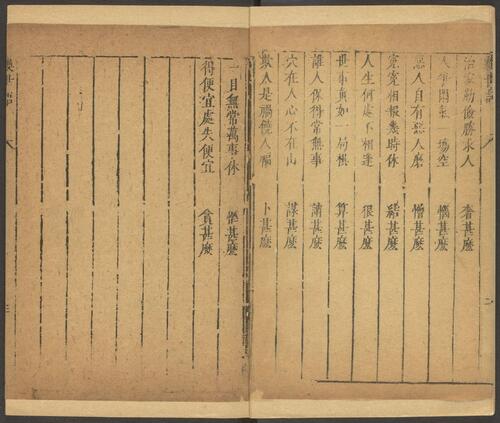 治家勤儉勝求人 奢甚麼
人爭閒氣一場空 惱甚麼
惡人自有惡人磨 憎甚麼
冤冤相報幾時休 結甚麼
人生何處不相逢 狠甚麼
世事真如一局棋 算甚麼
誰人保得常無事 誚甚麼
穴在人心不在山 謀甚麼
欺人是禍饒人福 卜甚麼
一旦無常萬事休 忙甚麼
得便宜處失便宜 貪甚麼